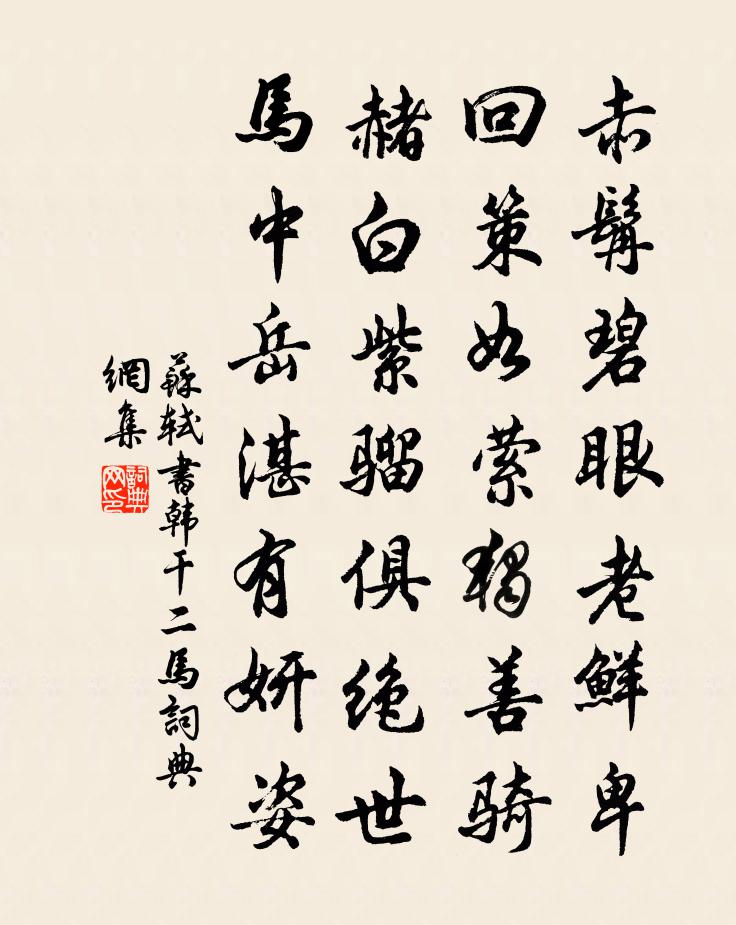 赤髯碧眼老鲜卑
回策如萦独善骑
赭白紫骝俱绝世
馬中岳湛有妍姿
蘇轼書韩干二馬詞典
網集
詞典
网印